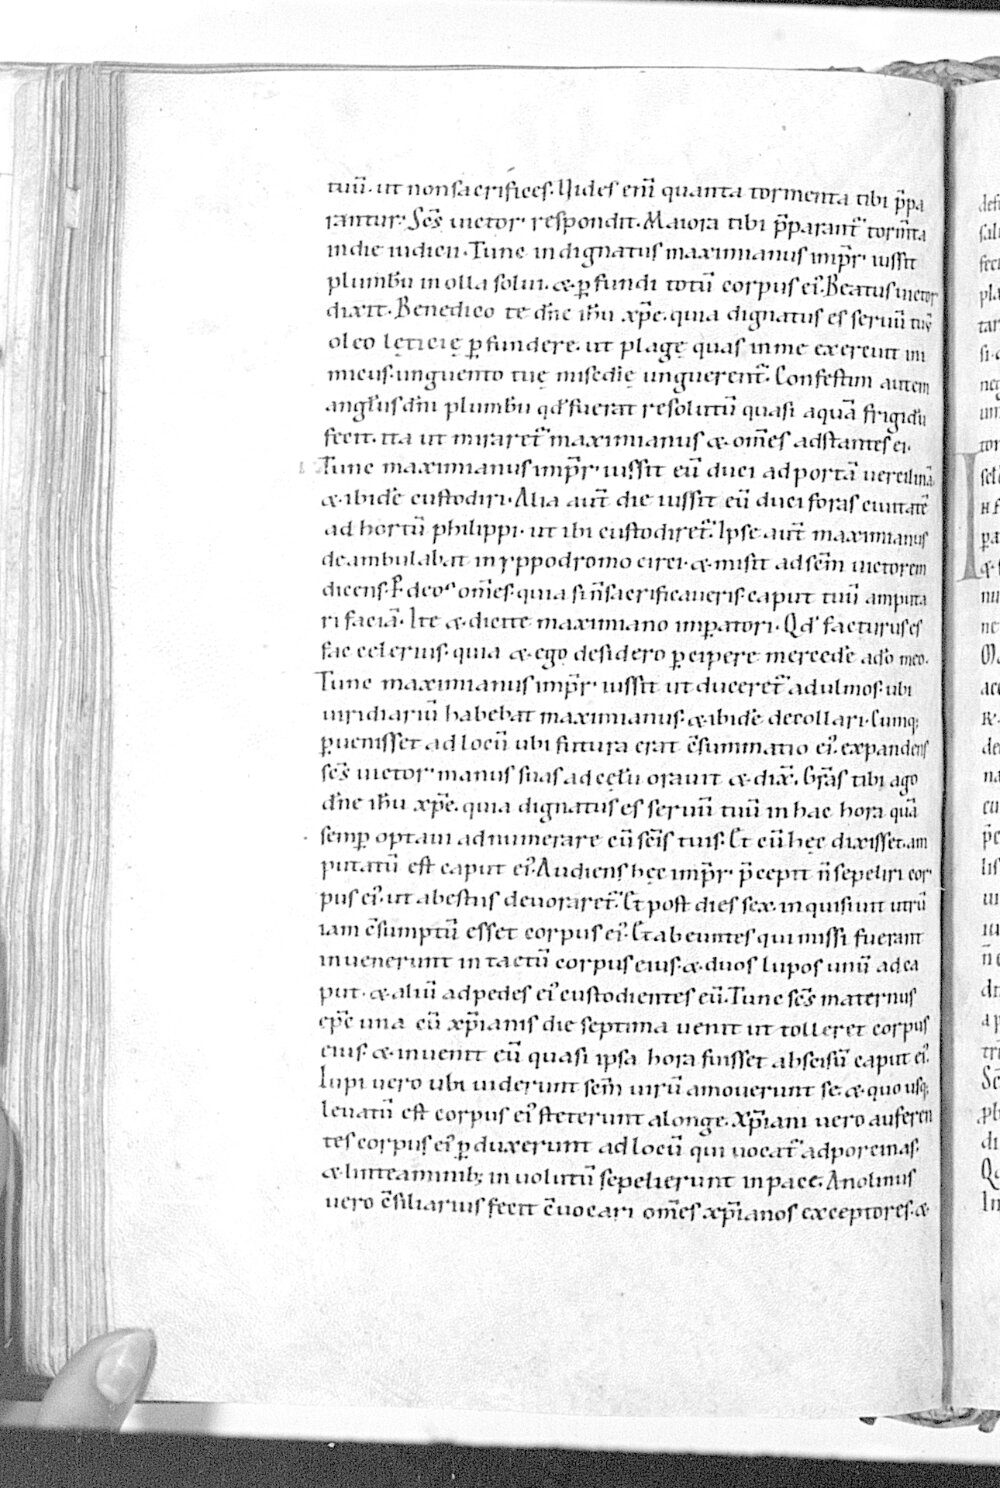 tuū. ut non sacrifices. Uides eni̅ quanta tormenta tibi p̅pa
rantur. Sc̅s uictor respondit. Maiora tibi p̅parant᷑ torm̅ta
in die iudicii. Tunc indignatus maximianus imp̅r. iussit
plumbū in olla solui. & ꝑfundi totū corpus ei᷒. Beatus uictor
dixit. Benedico te dn̅e ih̅u xp̅e. quia dignatus es seruū tuū
oleo lęticię ꝑfundere. ut plagę quas in me exercuit ini
micus. unguento tuę mis̅cdię unguerent᷑. Confestim autem
anglus dn̅i plumbū qd̕ fuerat resolutū quasi aquā frigidā
fecit. ita ut miraret᷑ maximianus & om̅es adstantes ei.
Tunc maximianus imp̅r. iussit eū duci ad portā uercillinā
& ibidē custodiri. Alia aut̅ die iussit eū duci foras ciuitatē
ad hortū philippi. ut ibi custodiret᷑. Ipse aut̅ maximianus
deambulabat in yppodromo circi. & misit ad sc̅m uictorem
dicens. P deos om̅es. quia si n̅ sacrificaueris. caput tuū amputa
ri faciā. Ite & dicite maximiano imꝑatori. Qd̕ facturus es
fac celerius. quia & ego desidero ꝑcipere mercedē a dō meo.
Tunc maximianus imp̅r. iussit ut duceret᷑ ad ulmos. ubi
uiridiariū habebat maximianus. & ibidē decollari. Cumq;
ꝑuenisset ad locū ubi futura erat c̅summatio ei᷒. expandens
sc̅s uictor manus suas ad cęlū orauit & dix̅. Gr̅as tibi ago
dn̅e ih̅u xp̅e. quia dignatus es seruū tuū in hac hora quā
semꝑ optaui adnumerare cū sc̅is tuis. Et cū hęc dixisset. am
putatū est caput ei᷒. Audiens hęc imp̅r. p̅cepit n̅ sepeliri cor
pus ei᷒. ut a bestiis deuoraret᷑. Et post dies sex. inquisiuit utrū
iam c̅sumptū esset corpus ei᷒. Et abeuntes qui missi fuerant
inuenerunt intactū corpus eius. & duos lupos unū ad ca
put. & aliū ad pedes ei᷒ custodientes eū. Tunc sc̅s maternus
ep̅c una cū xp̅ianis die septima uenit ut tolleret corpus
eius. & inuenit eū quasi ipsa hora fuisset abscisū caput ei᷒.
Lupi uero ubi uiderunt sc̅m uirū amouerunt se. & quo usq;
leuatū est corpus ei᷒ steterunt a longe. Xp̅iani uero auferen
tes corpus ei᷒ ꝑduxerunt ad locū qui uocat᷑ ad porcinas.
& linteaminib; inuolutū sepelierunt in pace. Anolinus
uero c̅siliarius fecit c̅uocari om̅es xp̅ianos exceptores. &